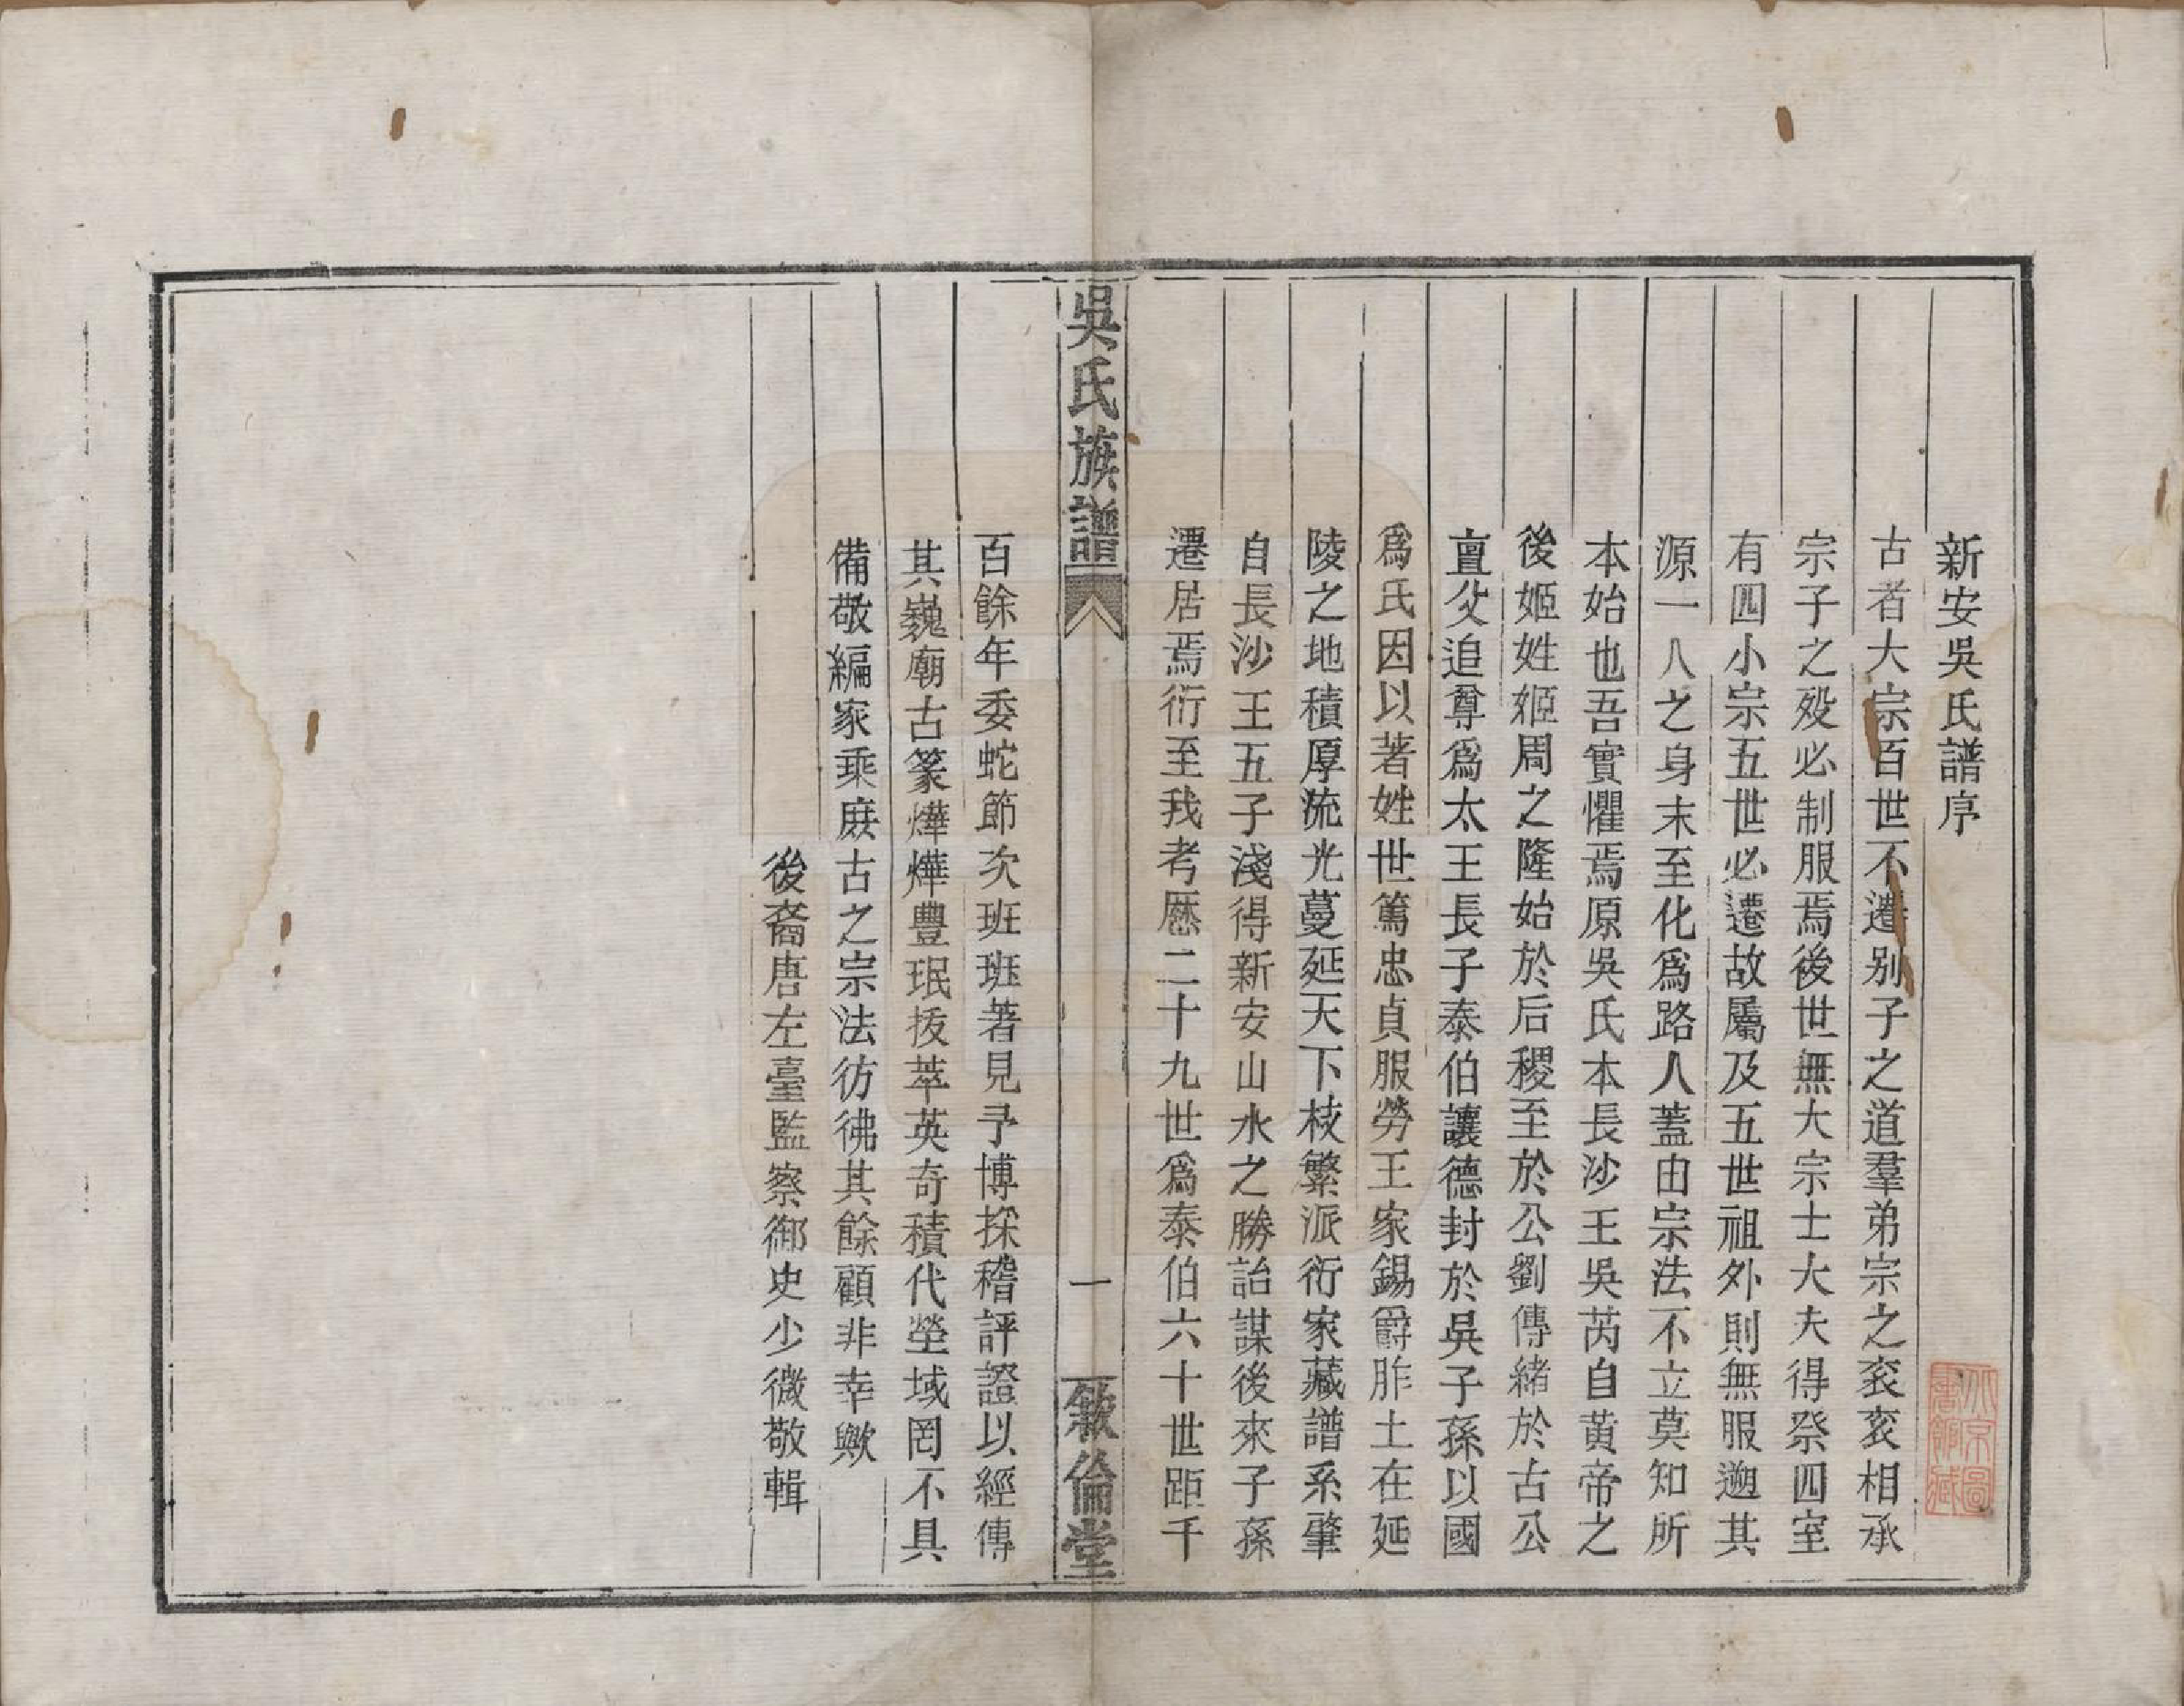 新安吳氏譜序
古者大宗百世不遷別子之道羣弟宗之衮衮相承
宗子之殁必制服焉後世無大宗士大夫得祭四室
有四小宗五世必遷故屬及五世祖外則無服遡其
源一人之身末至化爲路人蓋由宗法不立莫知所
本始也吾實懼焉原吳氏本長沙王吳芮自黃帝之
後姬姓姬周之隆始於后稷至於公劉傳緒於古公
亶父追尊爲太王長子泰伯讓德封於吳子孫以國
爲氏因以著姓世篤忠貞服勞王家錫爵胙土在延
陵之地積厚流光蔓延天下枝繁派衍家藏譜系肇
自長沙王五子淺得新安山水之勝詒謀後來子孫
遷居焉衍至我考曆二十九世爲泰伯六十世距千
吳氏族譜
一
敘倫堂
百餘年委蛇節次班班著見予博採稽評證以經傳
其巍廟古篆燁燁豐珉拔萃英奇積代塋域罔不具
備敬編家乘庶古之宗法彷彿其餘顧非幸歟
後裔唐左臺監察御史少微敬輯
北京圖
書館藏